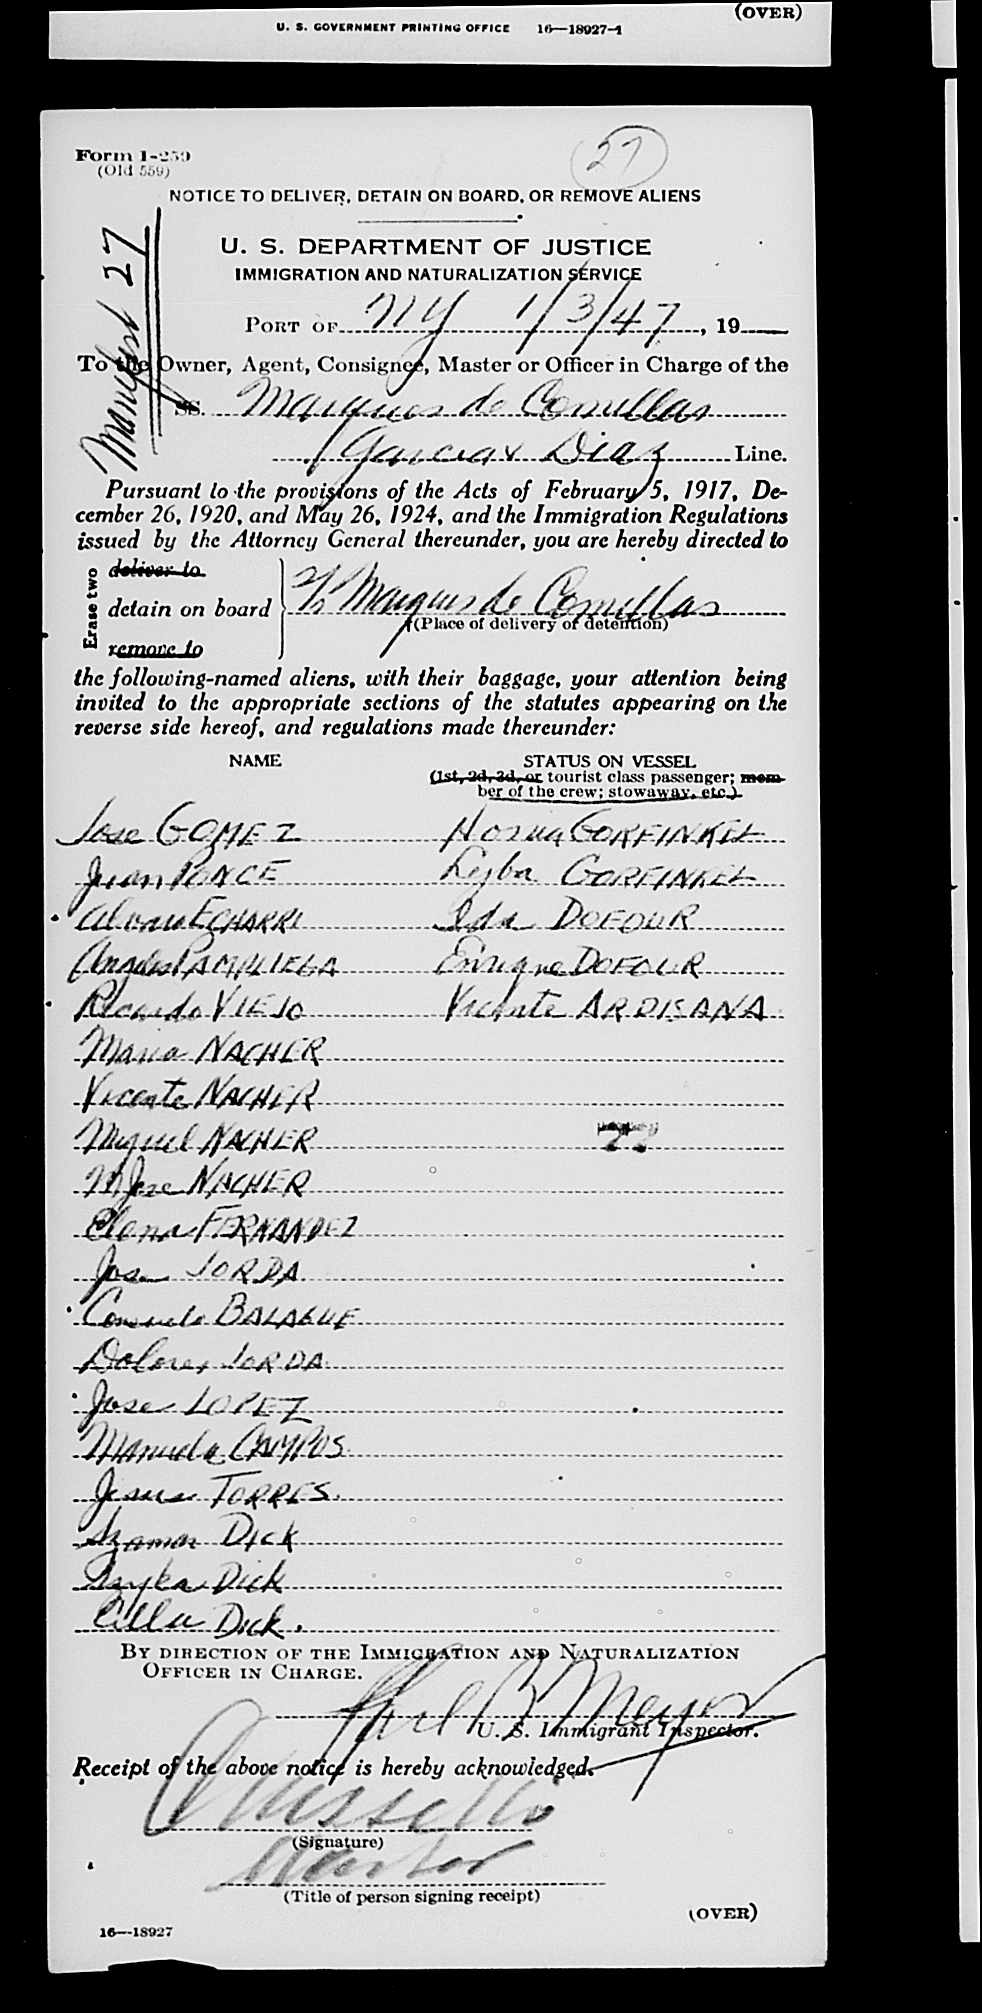 (OVER)
U. S. GOVERNMENT PRINTING OFFICE 16—18927-1
Form I-259
(Old 559)
27
NOTICE TO DELIVER, DETAIN ON BOARD, OR REMOVE ALIENS
Manifest 27
U. S. DEPARTMENT OF JUSTICE
IMMIGRATION AND NATURALIZATION SERVICE
PORT OF NY 1/3/47, 19
To the Owner, Agent, Consignee, Master or Officer in Charge of the
SS. Marques de Comillas
Garcia & Diaz Line.
Pursuant to the provisions of the Acts of February 5, 1917, De-
cember 26, 1920, and May 26, 1924, and the Immigration Regulations
issued by the Attorney General thereunder, you are hereby directed to
Erase two
deliver to
detain on board
remove to
Marques de Comillas
(Place of delivery or detention)
the following-named aliens, with their baggage, your attention being
invited to the appropriate sections of the statutes appearing on the
reverse side hereof, and regulations made thereunder:
NAME STATUS ON VESSEL
(1st, 2d, 3d, or tourist class passenger; mem-
ber of the crew; stowaway, etc.)
Jose GOMEZ GORFINKEL
Juan PONCE Lejba GORFINKEL
Alvaro ECHARRI Ida DOFOUR
Angeles PAMPLIEGA Enrique DOFOUR
Ricardo VIEJO Vicente ARDISANA
Maria NACHER
Vicente NACHER
Miguel NACHER
M Jose NACHER
Elena FERNANDEZ
Jose JORDA
Consuelo BALAGUE
Dolores JORDA
Jose LOPEZ
Manuela CAMPOS
Jesus TORRES
Szamon Dick
Dick
Cilla Dick.
BY DIRECTION OF THE IMMIGRATION AND NATURALIZATION
OFFICER IN CHARGE.
B Meyer
U. S. Immigrant Inspector.
Receipt of the above notice is hereby acknowledged.
(Signature)
Master
(Title of person signing receipt)
(OVER)
16—18927